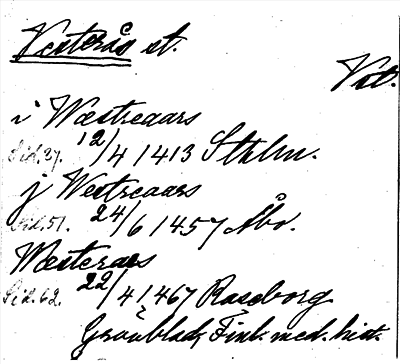 Vesterås st.
Vst.
i Wæstreaars
Sid. 27. 12/4 1413 Sthlm.
j Westreaars
Sid. 51. 24/6 1457 Åbo.
Wæsteraas
Sid. 62. 22/4 1467 Raseborg
Grönblad, Finl. med. hist.